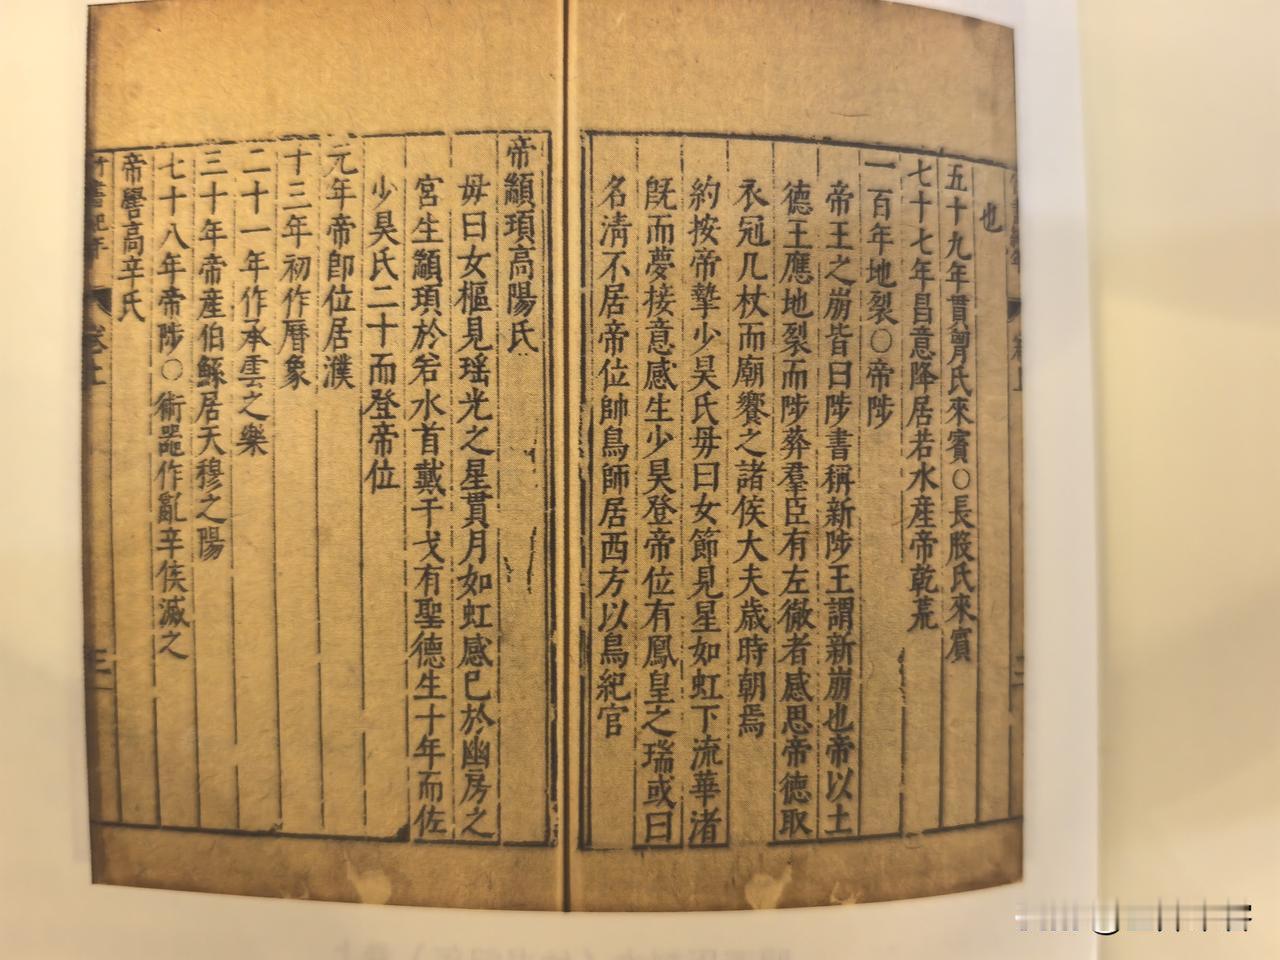 也
五十九年貫胷氏來賓○長股氏來賓
七十七年昌意降居若水產帝乾荒
一百年地裂○帝陟
帝王之崩皆曰陟書稱新陟王謂新崩也帝以土
德王應地裂而陟葬羣臣有左徹者感思帝德取
衣冠几杖而廟饗之諸侯大夫歲時朝焉
約按帝摯少昊氏毋曰女節見星如虹下流華渚
旣而夢接意感生少昊登帝位有鳳皇之瑞或曰
名淸不居帝位帥鳥師居西方以鳥紀官
帝顓頊高陽氏
毋曰女樞見瑤光之星貫月如虹感已於幽房之
宮生顓頊於若水首戴干戈有聖德生十年而佐
少昊氏二十而登帝位
元年帝卽位居濮
十三年初作曆象
二十一年作承雲之樂
三十年帝產伯鯀居天穆之陽
七十八年帝陟○術器作亂辛侯滅之
帝嚳高辛氏
竹書紀年 卷上 三